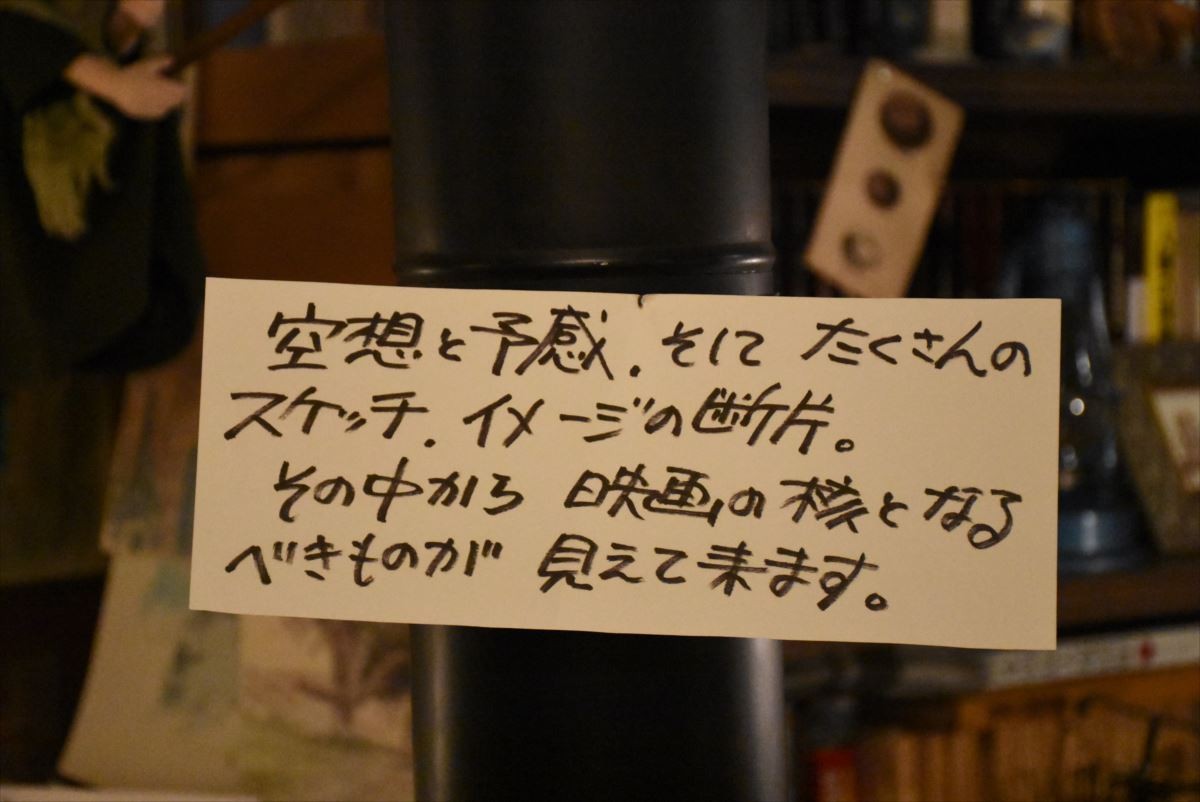 空想と予感.そして たくさんの
スケッチ.イメージの断片。
その中から 映画の核となる
べきものが 見えて来ます。